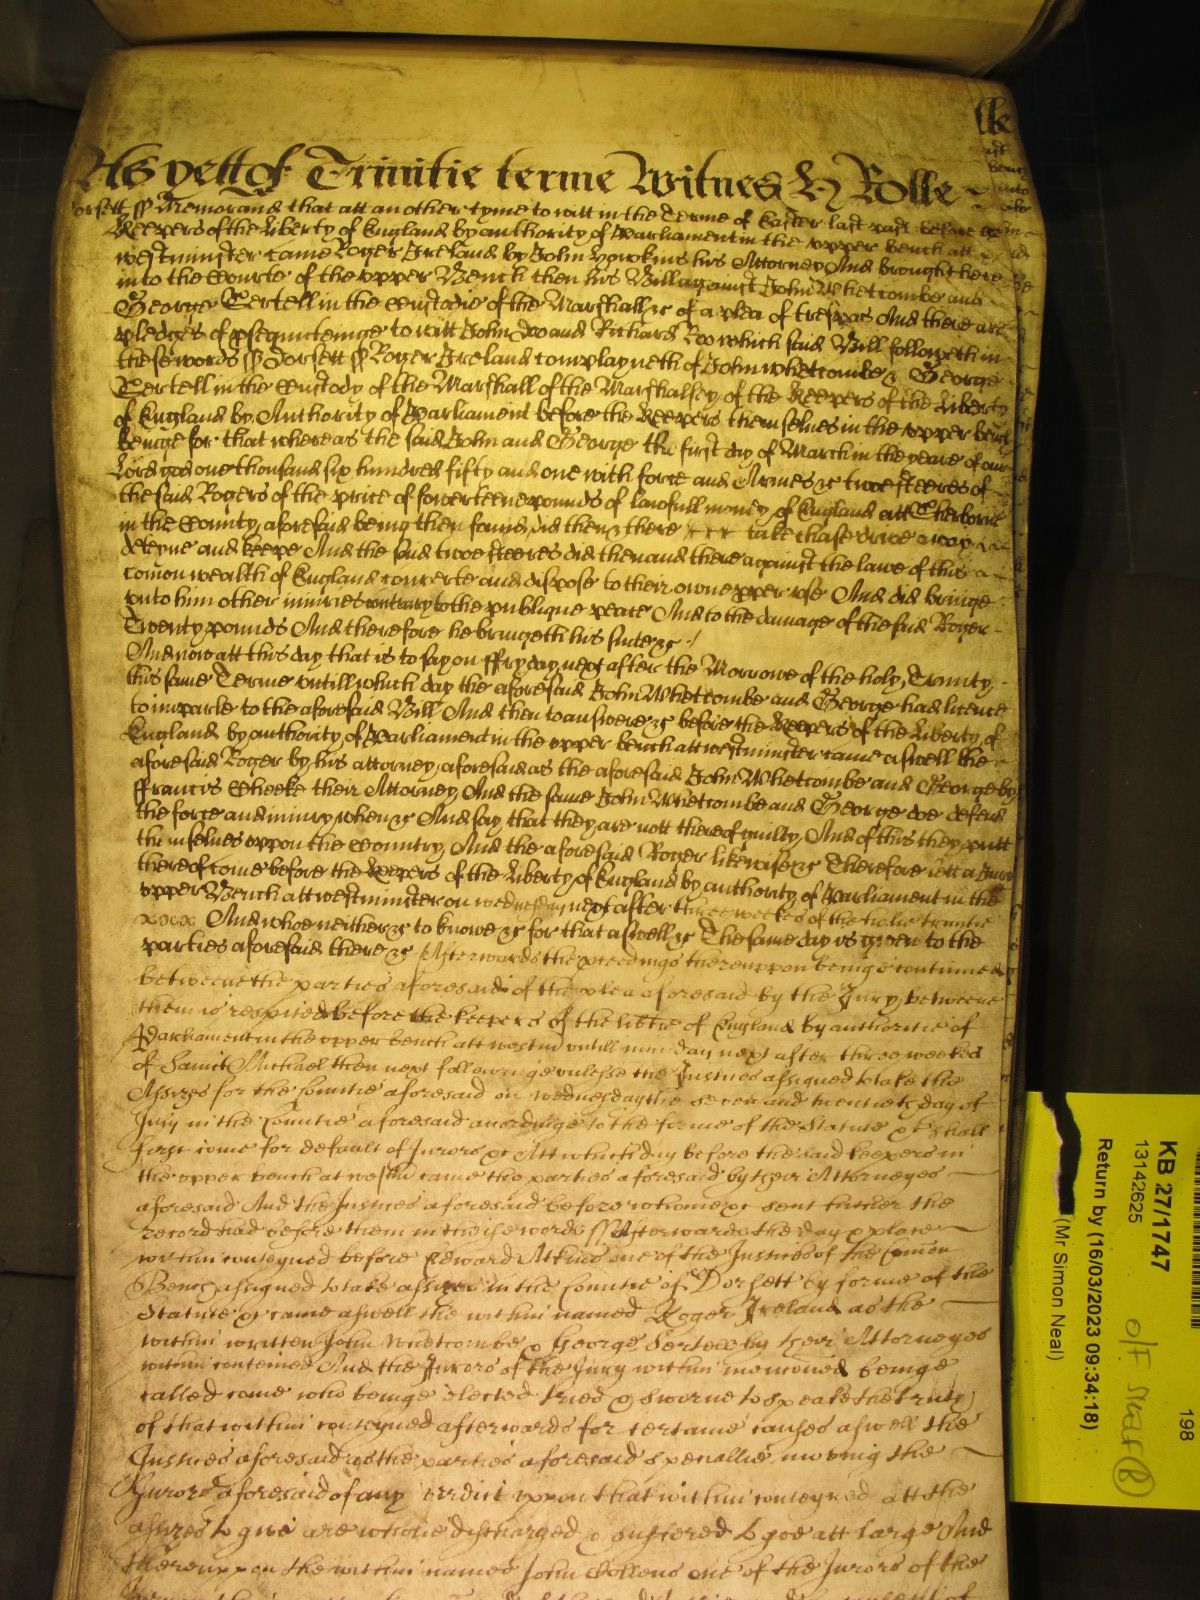 As yett of Trinitie terme Witnes H Rolle
orsett ss Memorand that att an other tyme to witt in the Terme of Easter last past before the
Keepers of the Liberty of England by authority of Parliament in the upper bench att
westminster came Roger Ireland by John Hopkins his Attorney And brought here
into the Courte of the upper Bench then his Bill against John Whetcombe and
George Tertell in the Custodie of the Marshall &c of a plea of trespas And there are
pledges of prosequuteinge to witt John Doo and Richard Roo which said Bill followeth in
these words ss Dorsett ss Roger Ireland complayneth of John Whetcombe & George
Tertell in the Custody of the Marshall of the Marshalsey of the Keepers of the Liberty
of England by Authority of Parliament before the Keepers themselves in the upper bench
beinge for that whereas the said John and George the first day of March in the yeare of our
Lord god one thousand six hundred fifty and one with force and Armes &c twoe steeres of
the said Rogers of the price of fowerteene pounds of lawfull money of England att Sherborne
in the County aforesaid being then found did then & there take chase drive away
deteyne and keepe And the said twoe steeres did then and there against the lawe of this
comon wealth of England converte and dispose to their owne pper use And did bringe
unto him other iniuries contrary to the publique peace And to the damage of the said Roger
Twenty pounds And therefore he bringeth his suite &c
And now att this day that is to say on ffryday next after the Morrowe of the holy Trinity
this same Terme untill which day the aforesaid John Whetcombe and George had licence
to imparle to the aforesaid Bill And then to answere &c before the Keepers of the Liberty of
England by authority of Parliament in the upper bench att westminster came aswell the
aforesaid Roger by his attorney aforesaid as the aforesaid John Whetcombe and George by
ffrancis Cheeke their Attorney And the same John Whetcombe and George doe defend
the force and iniury when &c And say that they are nott thereof guilty And of this they putt
themselves uppon the Country And the aforesaid Roger likewise &c Therefore lett a Jury
thereof come before the Keepers of the Liberty of England by authority of Parliament in the
upper Bench att westminster on wednesday next after three weekes of the holie trinitie
And whoe neither &c to knowe &c for that aswell &c The same day is given to the
parties aforesaid there &c Afterwards the pceedings thereuppon beinge continued
betweene the parties aforesaid of the plea aforesaid by the Jury betweene
them is respited before the keepers of the libtie of England by authoritie of
Parliament in the upper bench att westm untill munday next after three weekes
of Saint Michael then next followinge unlesse the Justices assigned to take the
Assizes for the Countie aforesaid on wednesday the seven and twentieth day of
July in the Countie aforesaid accordinge to the forme of the Statute &c shall
first come for default of Jurors &c Att which day before the said keepers in
the upper bench at westm came the parties aforesaid by their Attorneyes
aforesaid And the Justices aforesaid before whome &c sent hither the
record had before them in theise words ss Afterwards the day & place
within conteyned before Edward Atkins one of the Justices of the Comon
Bench assigned to take assizes in the Countie of Dorsett by forme of the
Statute &c came aswell the within named Roger Ireland as the
within written John Whetcombe & George Tertell by their Attorneyes
within conteined And the Jurors of the Jury within mencioned beinge
called come who beinge elected tried & sworne to speake the truth
of that within conteyned afterwards for certaine causes aswell the
Justices aforesaid as the parties aforesaid speciallie moving the
Jurors aforesaid of any verdict uppon that within conteyned att the
assizes to give are wholie discharged & suffered to goe att large And
thereuppon the within named John one of the Jurors of the
KB 27/1747
13142625
Return by (16/03/2023 09:34:18)
(Mr Simon Neal)
198